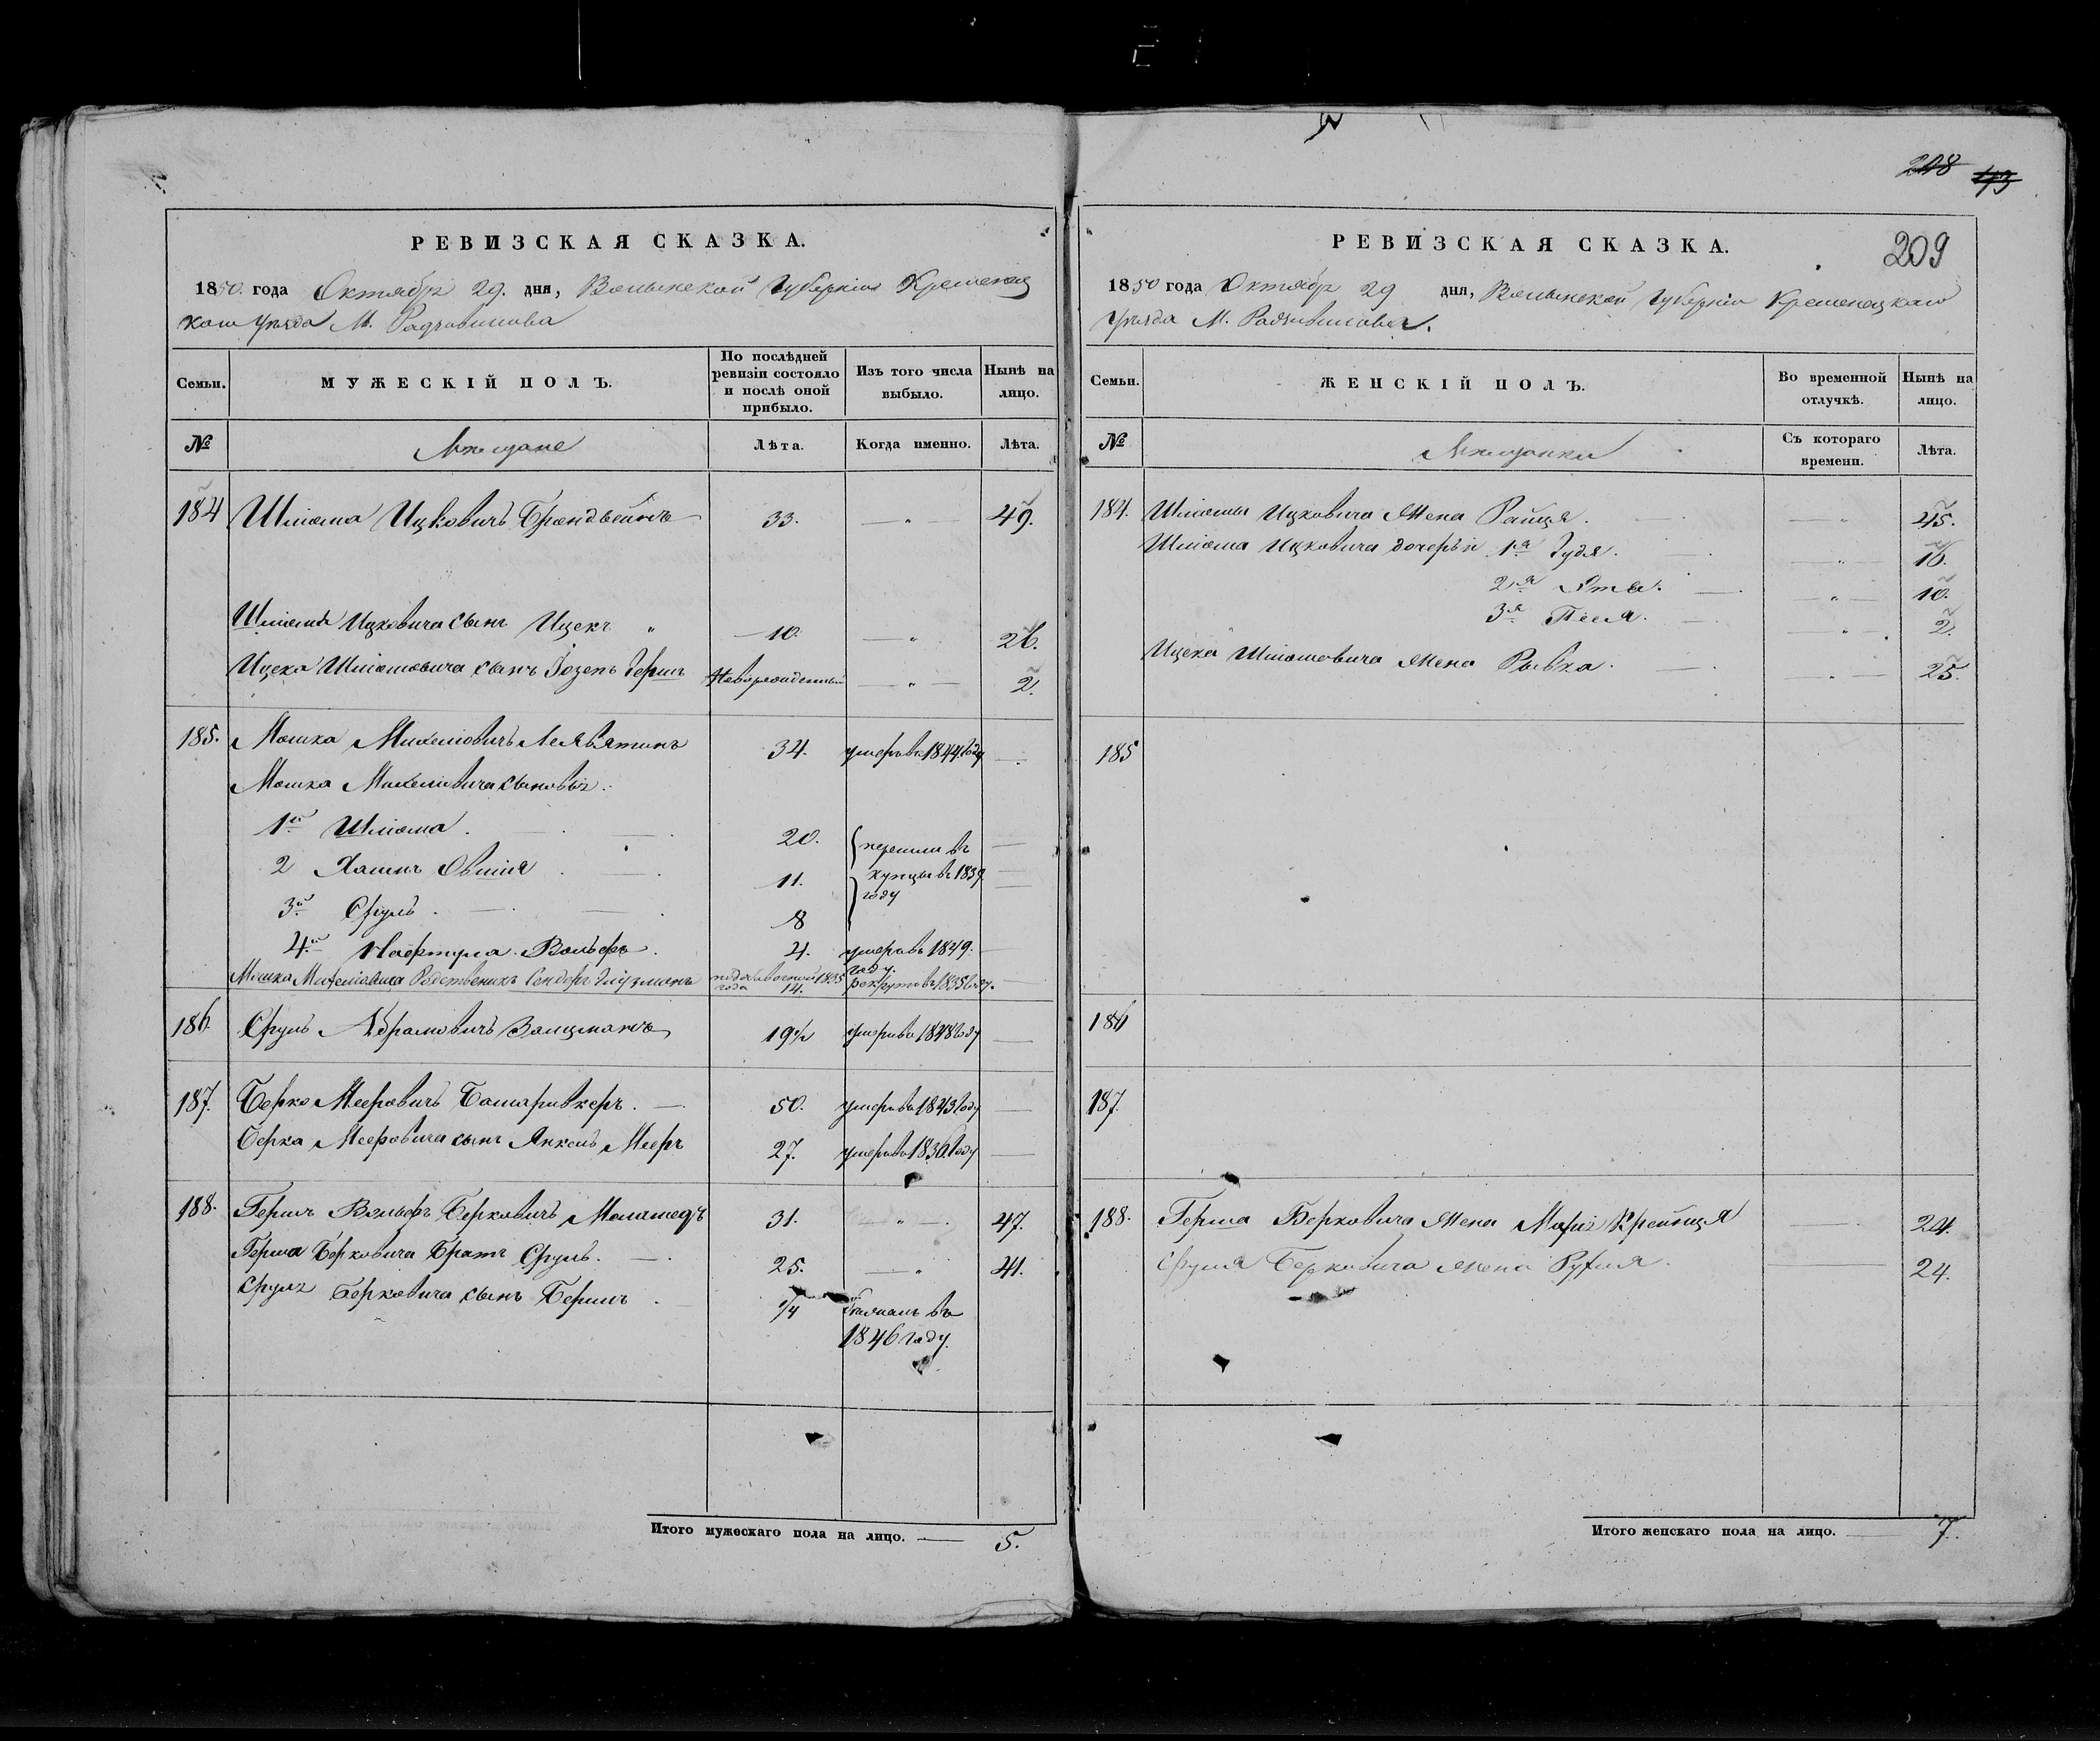 РЕВИЗСКАЯ СКАЗКА.
1850. года Октября 29. дня, Волынской Губерніи Кременец
каго Уѣзда М. Радзивилова
Семьи.
МУЖЕСКІЙ ПОЛЪ.
По послѣдней ревизіи состояло и послѣ оной прибыло.
Изъ того числа выбыло.
Нынѣ на лицо.
№
Мещане
Лѣта.
Когда именно.
Лѣта.
184 Шліома Ицковичъ Брандвейнъ 33. — „ 49.
Шліома Ицковича сынъ Ицекъ „ 10. — „ 26.
Ицека Шліомовича сынъ Іозепъ Гершъ Новорожденный — „ — 2.
185. Мошка Михелювичъ 34. умеръ въ 1844 году —
Мошка Михелювича сыновья.
1й Шліома. 20. перешли въ —
2 Хаимъ Овшія 11. купцы въ 1839 —
году
3й Сруль. 8
4й Нафтула Вольфъ. 4. умеръ въ 1849. —
году.
Мошка Михелювича Родственикъ Сендеръ 1835 года 14. рекрутъ въ 1835 году. —
186 Сруль Абрамовичъ Залцманъ 19½ умеръ въ 1848 году —
187. Берко Мееровичъ 50. умеръ въ 1843 году —
Берка Мееровича сынъ Янкель Мееръ 27. умеръ въ 1836 году —
188. Гершъ Вольфъ Берковичъ Меламедъ 31. — „ — 47.
Герша Берковича братъ Сруль. 25. — „ 41.
Сруля Берковича сынъ Бершъ. 1/4 въ
1846 году.
Итого мужескаго пола на лицо. — 5.
208 43
РЕВИЗСКАЯ СКАЗКА.
209
1850 года Октября 29 дня, Волынской Губерніи Кременецкаго
Уѣзда М. Радзивилова.
Семьи.
ЖЕНСКІЙ ПОЛЪ.
Во временной отлучкѣ.
Нынѣ на лицо.
№
Мещанки
Съ котораго времени.
Лѣта.
184. Шліомы Ицковича жена Райця. — „ — 45.
Шліома Ицковича дочерьи 1я Гудя. — „ — 16.
2я Ята. — „ — 10.
3я Песя. — „ — 2.
Ицека Шліомовича жена Рывка. — „ — 25.
185
186
187.
188. Герша Берковича жена Маріе Крейнця — 24.
Сруля Берковича жена Рухля. — 24.
Итого женскаго пола на лицо. — 7.